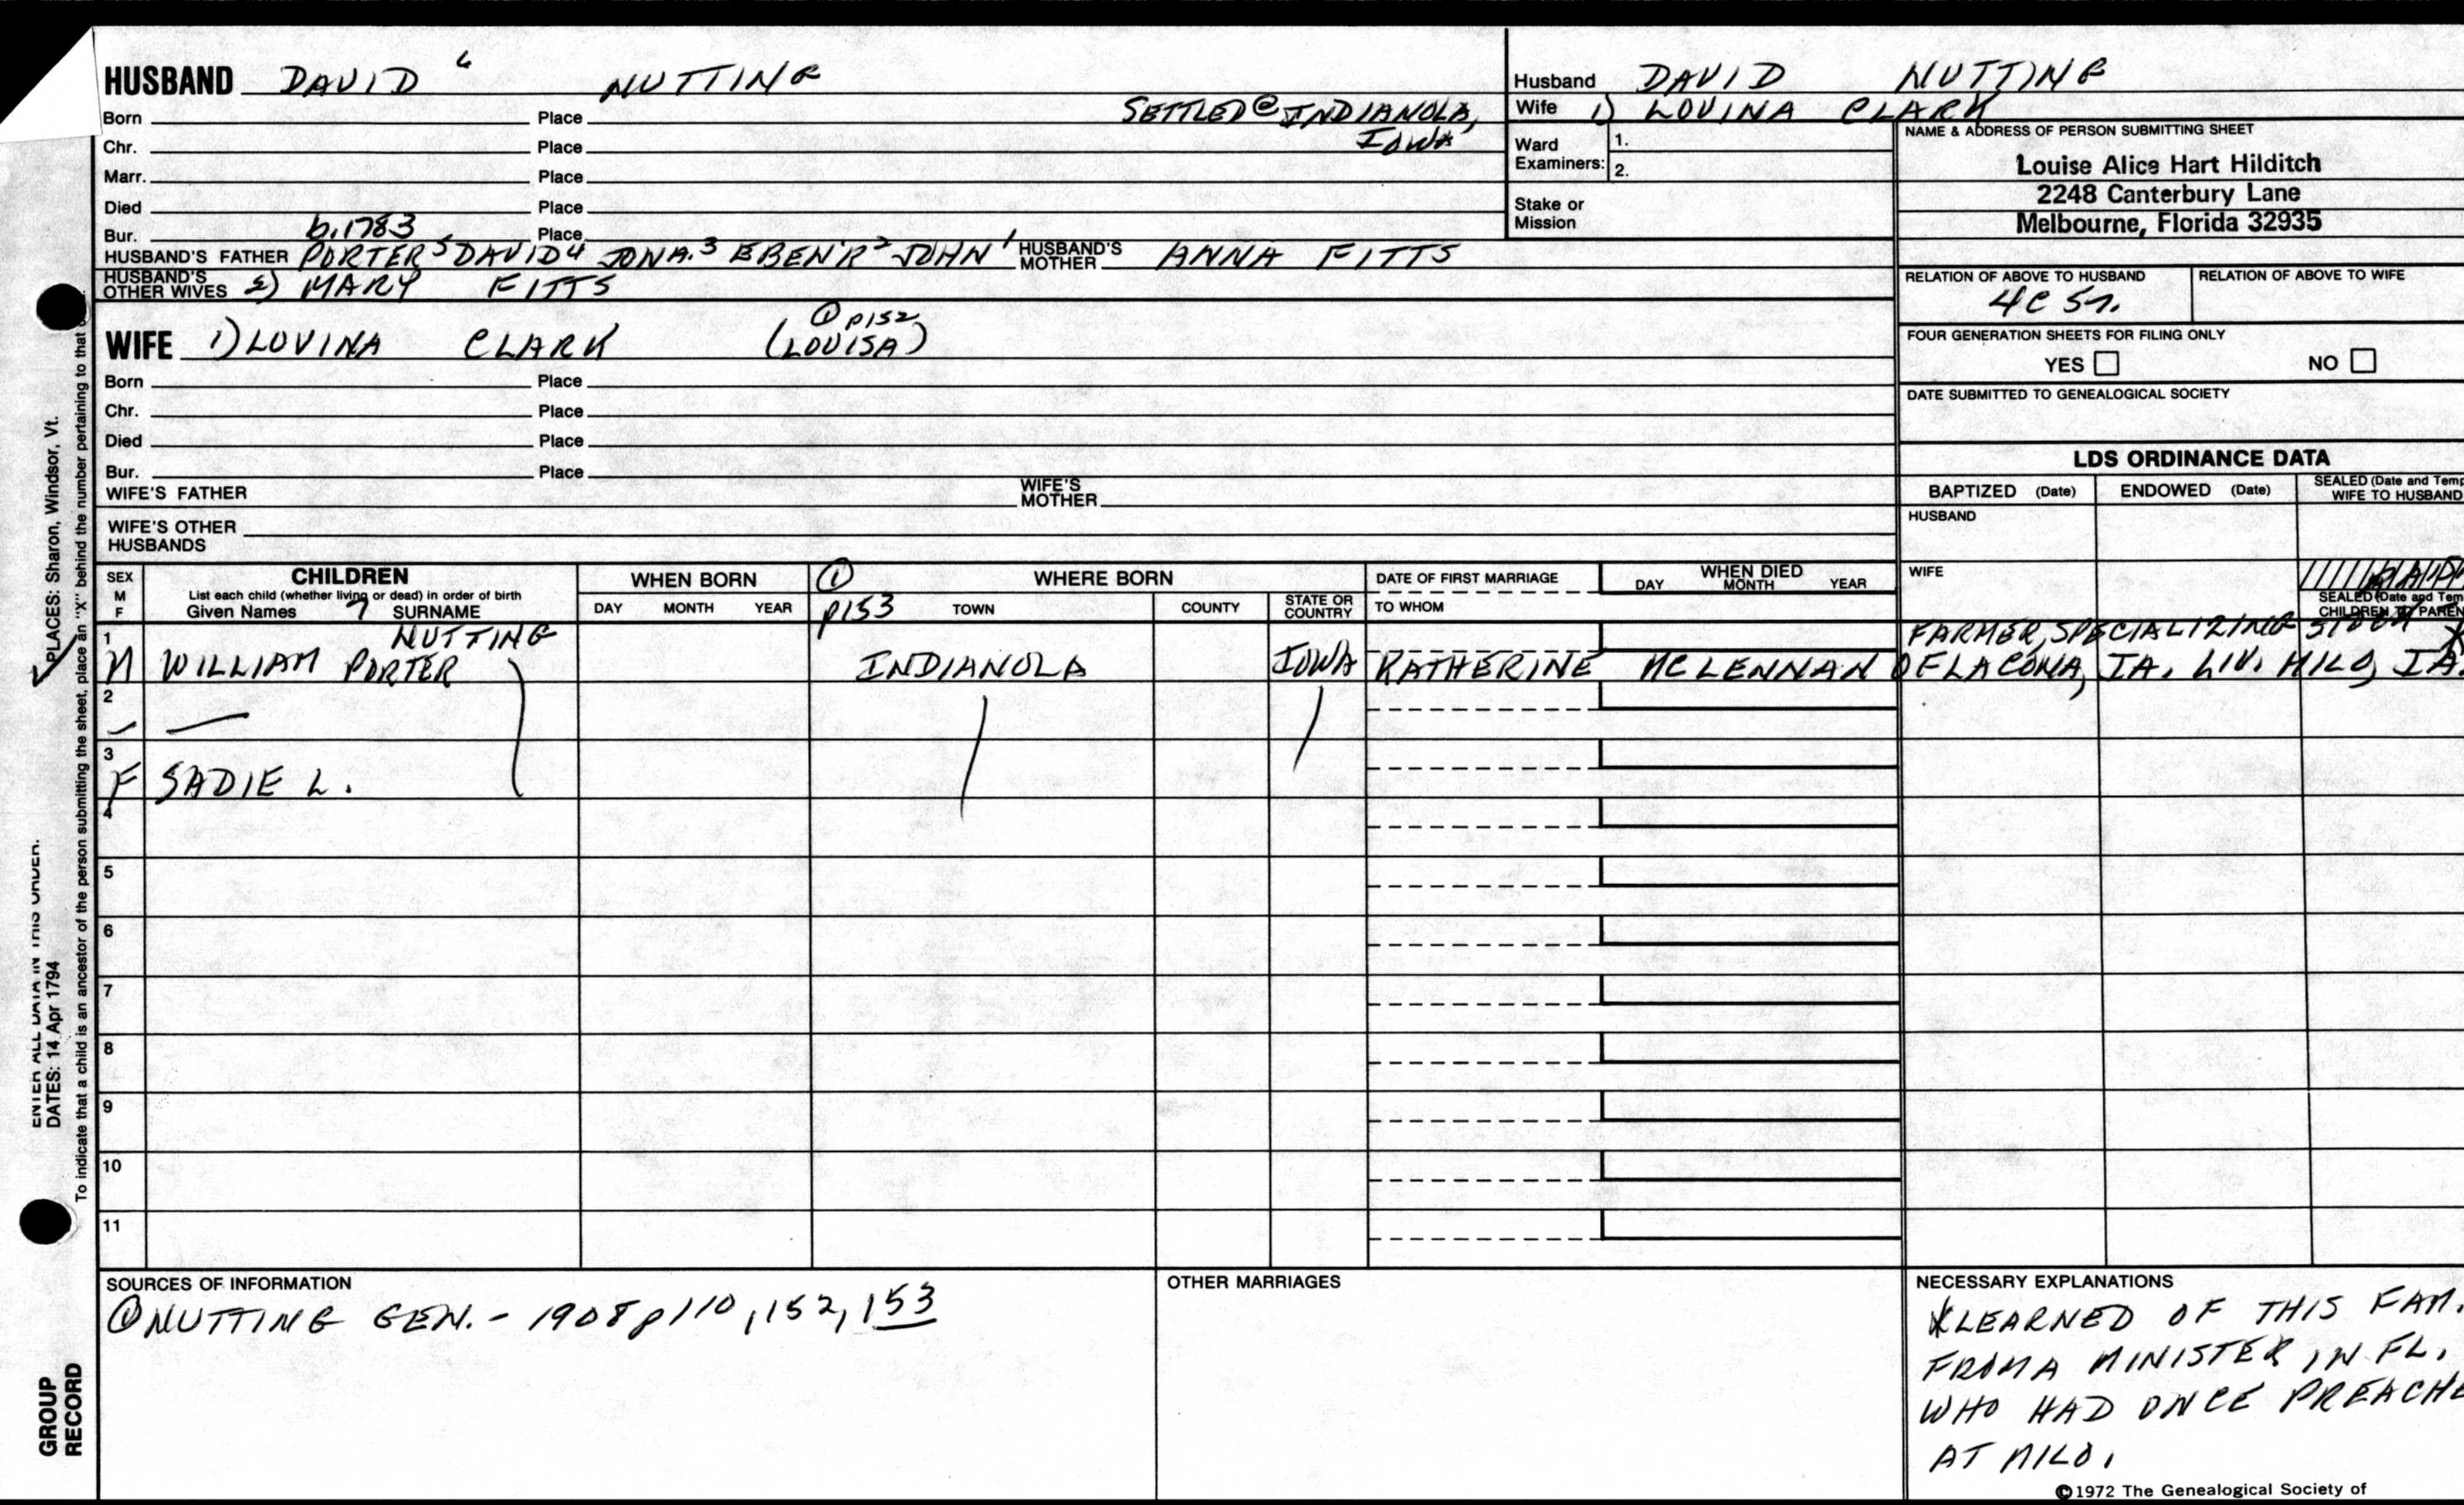 HUSBAND DAVID 6 NUTTING
Born Place SETTLED @ INDIANOLA,
Chr. Place IOWA
Marr. Place
Died Place
Bur. b. 1783 Place
HUSBAND'S FATHER PORTER 5 DAVID 4 JONA. 3 EBEN'R 2 JOHN 1 HUSBAND'S MOTHER ANNA FITTS
HUSBAND'S OTHER WIVES 2) MARY FITTS
① p152
WIFE 1) LOVINA CLARK (LOUISA)
Born Place
Chr. Place
Died Place
Bur. Place
WIFE'S FATHER WIFE'S MOTHER
WIFE'S OTHER HUSBANDS
Husband DAVID NUTTING
Wife 1) LOVINA CLARK
Ward Examiners: 1.
2.
Stake or Mission
NAME & ADDRESS OF PERSON SUBMITTING SHEET
Louise Alice Hart Hilditch
2248 Canterbury Lane
Melbourne, Florida 32935
RELATION OF ABOVE TO HUSBAND RELATION OF ABOVE TO WIFE
4C 5r.
FOUR GENERATION SHEETS FOR FILING ONLY
YES NO
DATE SUBMITTED TO GENEALOGICAL SOCIETY
LDS ORDINANCE DATA
BAPTIZED (Date) ENDOWED (Date) SEALED (Date and Temp
WIFE TO HUSBAND
HUSBAND
WIFE
SEALED (Date and Tem
CHILDREN TO PAREN
SEX M F CHILDREN WHEN BORN ① WHERE BORN DATE OF FIRST MARRIAGE WHEN DIED
List each child (whether living or dead) in order of birth
Given Names 7 SURNAME DAY MONTH YEAR p153 TOWN COUNTY STATE OR COUNTRY TO WHOM DAY MONTH YEAR
1 NUTTING FARMER, SPECIALIZING STOCK *
M WILLIAM PORTER INDIANOLA IOWA KATHERINE MCLENNAN OF LACONA, IA. LIV. MILO, IA.
2
— —
3
F SADIE L.
4
5
6
7
8
9
10
11
SOURCES OF INFORMATION
① NUTTING GEN. - 1908 p110, 152, 153
OTHER MARRIAGES
NECESSARY EXPLANATIONS
* LEARNED OF THIS FAM.
FROM A MINISTER IN FL.
WHO HAD ONCE PREACHE
AT MILO.
©1972 The Genealogical Society of
PLACES: Sharon, Windsor, Vt.
ENTER ALL DATA IN THIS ORDER.
DATES: 14 Apr 1794
To indicate that a child is an ancestor of the person submitting the sheet, place an "X" behind the number pertaining to that
GROUP
RECORD